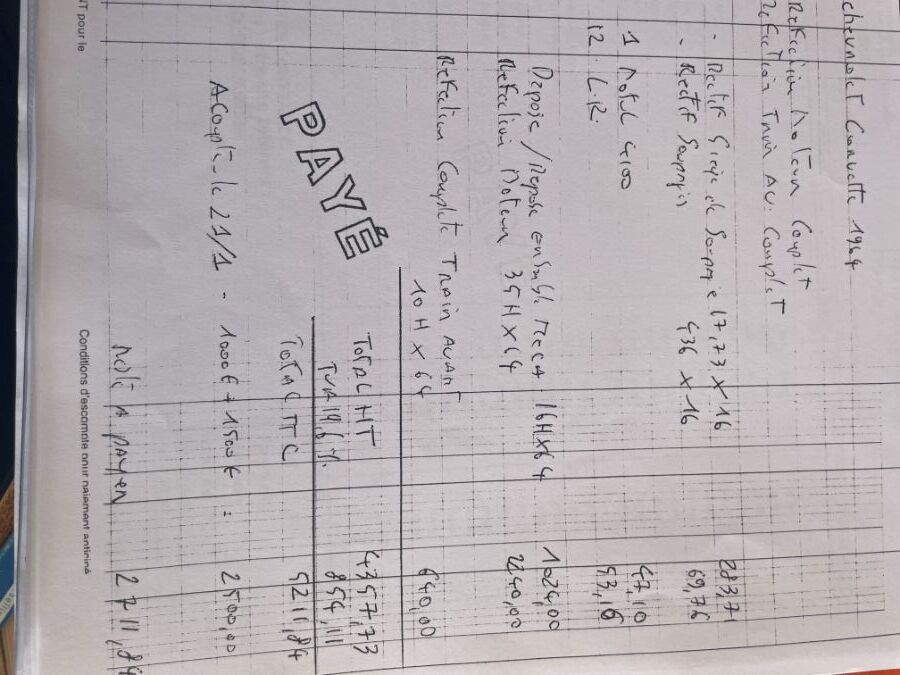 Chevrolet Corvette 1964
Refection Moteur Complet
Refection Train Av. Complet
- Rectif Siege de Soupape 17,73 X 16 283,71
- Rectif Soupapes 436 X 16 69,76
1 Motul 4100 47,10
12. L.R. 53,16
Depose / Repose ensemble meca 16H X 64 1024,00
Refection Moteur 35H X 64 2240,00
Refection Complete Train Avant
10H X 64 640,00
TOTAL HT 4357,73
TVA 19,6%. 854,11
TOTAL TTC 5211,84
PAYÉ
Acompte le 21/1 - 1000€ + 1500€ = 2500,00
Note A payer 2711,84
NT pour le
Conditions d'escompte pour paiement anticipé